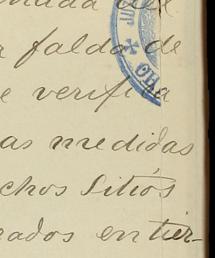 del
falda de
e verifica
as medidas
chos Sitios
rados en tier-